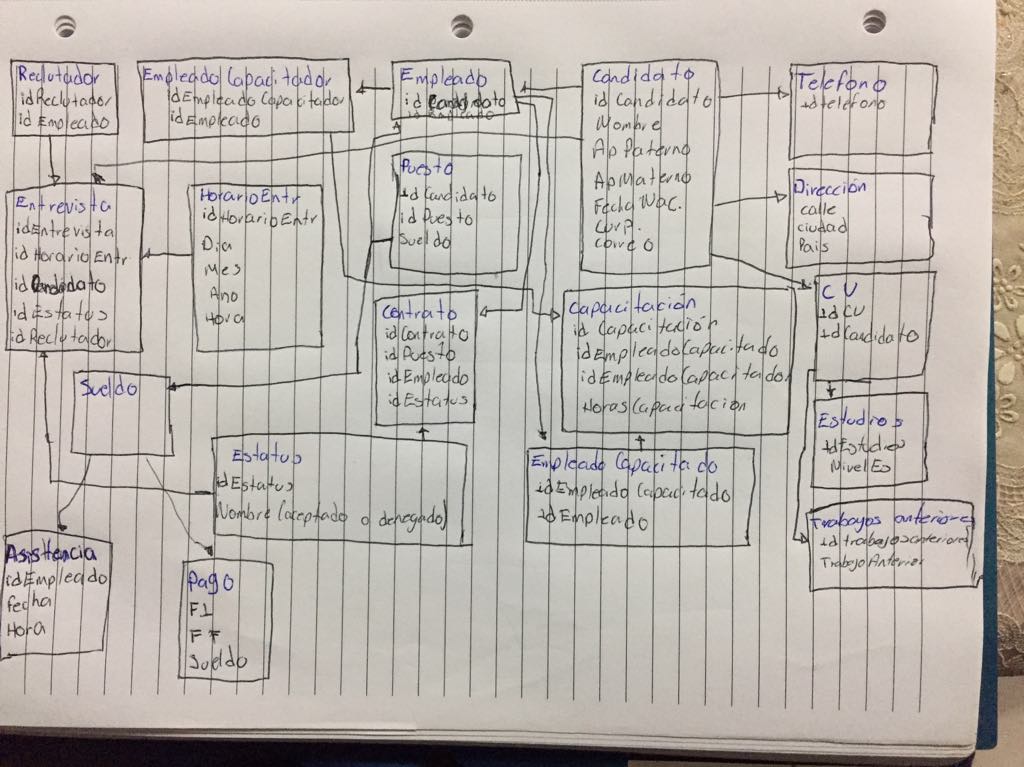 Reclutador
idReclutador
idEmpleado
Empleado Capacitador
idEmpleado Capacitador
idEmpleado
Empleado
id Candidato
idEmpleado
Candidato
id Candidato
Nombre
ApPaterno
ApMaterno
Fecha Nac.
Curp.
Correo
Teléfono
idteléfono
Dirección
calle
ciudad
País
Entrevista
idEntrevista
id HorarioEntr
idCandidato
idEstatus
idReclutador
HorarioEntr
idHorarioEntr
Dia
Mes
Ano
Hora
Puesto
idCandidato
idPuesto
Sueldo
Contrato
idContrato
idPuesto
idEmpleado
idEstatus
Capacitación
id Capacitación
idEmpleadoCapacitado
idEmpleadoCapacitado
HorasCapacitacion
CV
idCV
idCandidato
Sueldo
Estatus
idEstatus
Nombre (aceptado o denegado)
Empleado Capacitado
idEmpleado Capacitado
idEmpleado
Estudios
idEstudios
NivelEs
Trabajos anteriores
idtrabajosanteriores
TrabajoAnterior
Asistencia
idEmpleado
Fecha
Hora
Pago
FI
FF
Sueldo